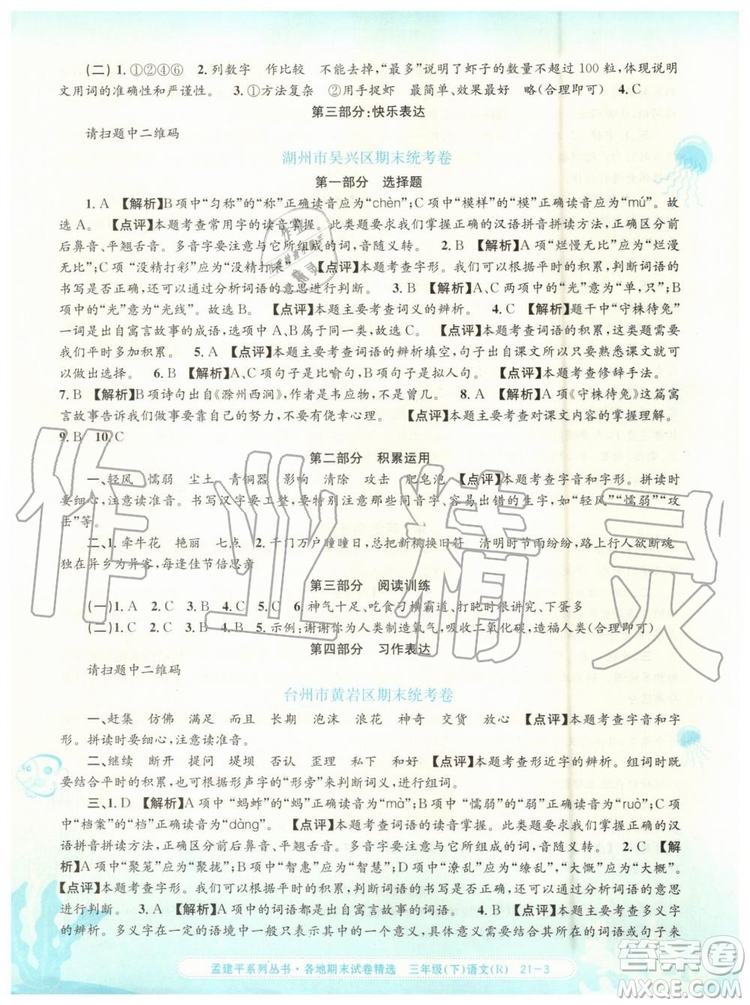 (二)1.①②④⑥ 2.列数字 作比较 不能去掉,“最多”说明了虾子的数量不超过100粒,体现说明
文用词的准确性和严谨性。 3.①方法复杂 ②用手捉虾 最简单、效果最好 略(合理即可) 4.C
第三部分:快乐表达
请扫题中二维码
湖州市吴兴区期末统考卷
第一部分 选择题
1.A 【解析】B项中“匀称”的“称”正确读音应为“chèn”;C项中“模样”的“模”正确读音应为“mú”。故
选A。 【点评】本题考查常用字的读音掌握。此类题要求我们掌握正确的汉语拼音拼读方法,正确区分前
后鼻音、平翘舌音。多音字要注意与它所组成的词的词义进行联系,随义定音。 2.B 【解析】A项“烂慢无比”应为“烂漫
无比”;C项“没精打彩”应为“没精打采”。 【点评】本题考查字形。此题要求我们根据平时的积累,对词语
的书写是否正确进行辨析,可结合词语的意思进行判断。 3.B 【解析】A、C两项中的“光”意为“单,只”;B
项中的“光”意为“光线”。故选B。 【点评】本题主要考查词义的辨析。 4.C 【解析】题干中“守株待兔”
一词是出自寓言故事的成语,选项A、B、D三项均属于这一类型。 【点评】本题主要考查词语的归类。要求
我们平时多加积累。 5.A 【点评】本题考查词语的辨析填空,句子出自课文的可以先要熟悉课文内容就可以
做出选择。 6.C 【解析】C项中的句子是比喻句,其余三个句子是拟人句。 【点评】本题考查修辞手法。
7.B 【解析】B项诗句出自《滁州西涧》,作者是韦应物,不是晏殊。 8.A 【解析】《守株待兔》这篇寓
言故事告诉我们不能抱有侥幸心理。 【点评】本题主要考查对课文内容的掌握理解。
9.B 10.C
第二部分 积累运用
一、轻风 懦弱 尘土 青铜器 影响 清除 攻击 肥皂泡 【点评】本题考查字音和字形。拼读时
要注意读准音。书写汉字要工整,要特别注意那些容易出错的字形,如“轻风”“懦弱”“攻
击”等。
二、1.牵牛花 艳丽 七点 2.千门万户曈曈日,总把新桃换旧符 清明时节雨纷纷,路上行人欲断魂
独在异乡为异客,每逢佳节倍思亲
第三部分 阅读训练
(一)1.A 2.C 3.B 4.C 5.C 6.神气十足、吃食习惯霸道、蹬栏时很讲究、下蛋多
(二)1.C 2.A 3.B 4.B 5.示例:谢谢你为人类制造氧气,吸进二氧化碳,造福人类(合理即可)
第四部分 习作表达
请扫题中二维码
台州市黄岩区期末统考卷
一、赶集 仿佛 满足 而且 长期 泡沫 浪花 神奇 交货 放心 【点评】本题考查字音和字
形。拼读时要细心,注意读准音。
二、继续 断开 提问 堤坝 否认 歪曲 影子 景象 【点评】本题考查形近字的辨析。组词时
要结合平时的积累,可根据形声字的“形旁”来判断词义,进行组词。
三、1.D 【解析】A项中“蚂蚱”的“蚂”正确读音应为“mà”;B项中“懦弱”的“弱”正确读音应为“ruò”;C
项中“档案”的“档”正确读音应为“dàng”。 【点评】本题考查词语的读音掌握。此类题要求我们掌握正
确的汉语拼音拼读方法,正确区分前后鼻音、平翘舌音。多音字要注意与它所组成的词的词义进行联系,随义定音。 2.C 【解析】A项
中“聚笼”应为“聚拢”;B项中“智惠”应为“智慧”;D项中“潦乱”应为“缭乱”,“大慨”应为“大概”。
【点评】本题考查字形。此题要求我们根据平时的积累,对词语的书写是否正确进行辨析,可结合词语的意思
进行判断。 3.A 【解析】A项中的词语都是出自寓言故事的词语。 4.B 【点评】本题考查多义字的
辨析。多义字在一定的语言环境中,一般只用其中的一个意义,而这个意义在具体的语言环境中是固定的,
孟建平系列丛书·各地期末试卷精选 三年级(下)语文(R) 21-3
作业精灵